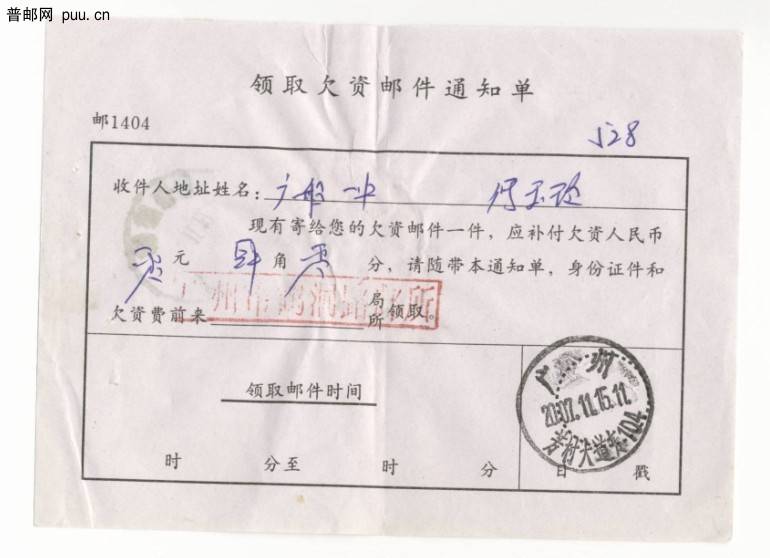 普邮网 puu.cn
领取欠资邮件通知单
邮1404
528
收件人地址姓名：广船一中
现有寄给您的欠资邮件一件，应补付欠资人民币
零元肆角零分，请随带本通知单，身份证件和
欠资费前来 局所 领取。
广州市 所
领取邮件时间
时 分至 时 分
日 戳
广州
2007.11.15.11
芳村大道东 104